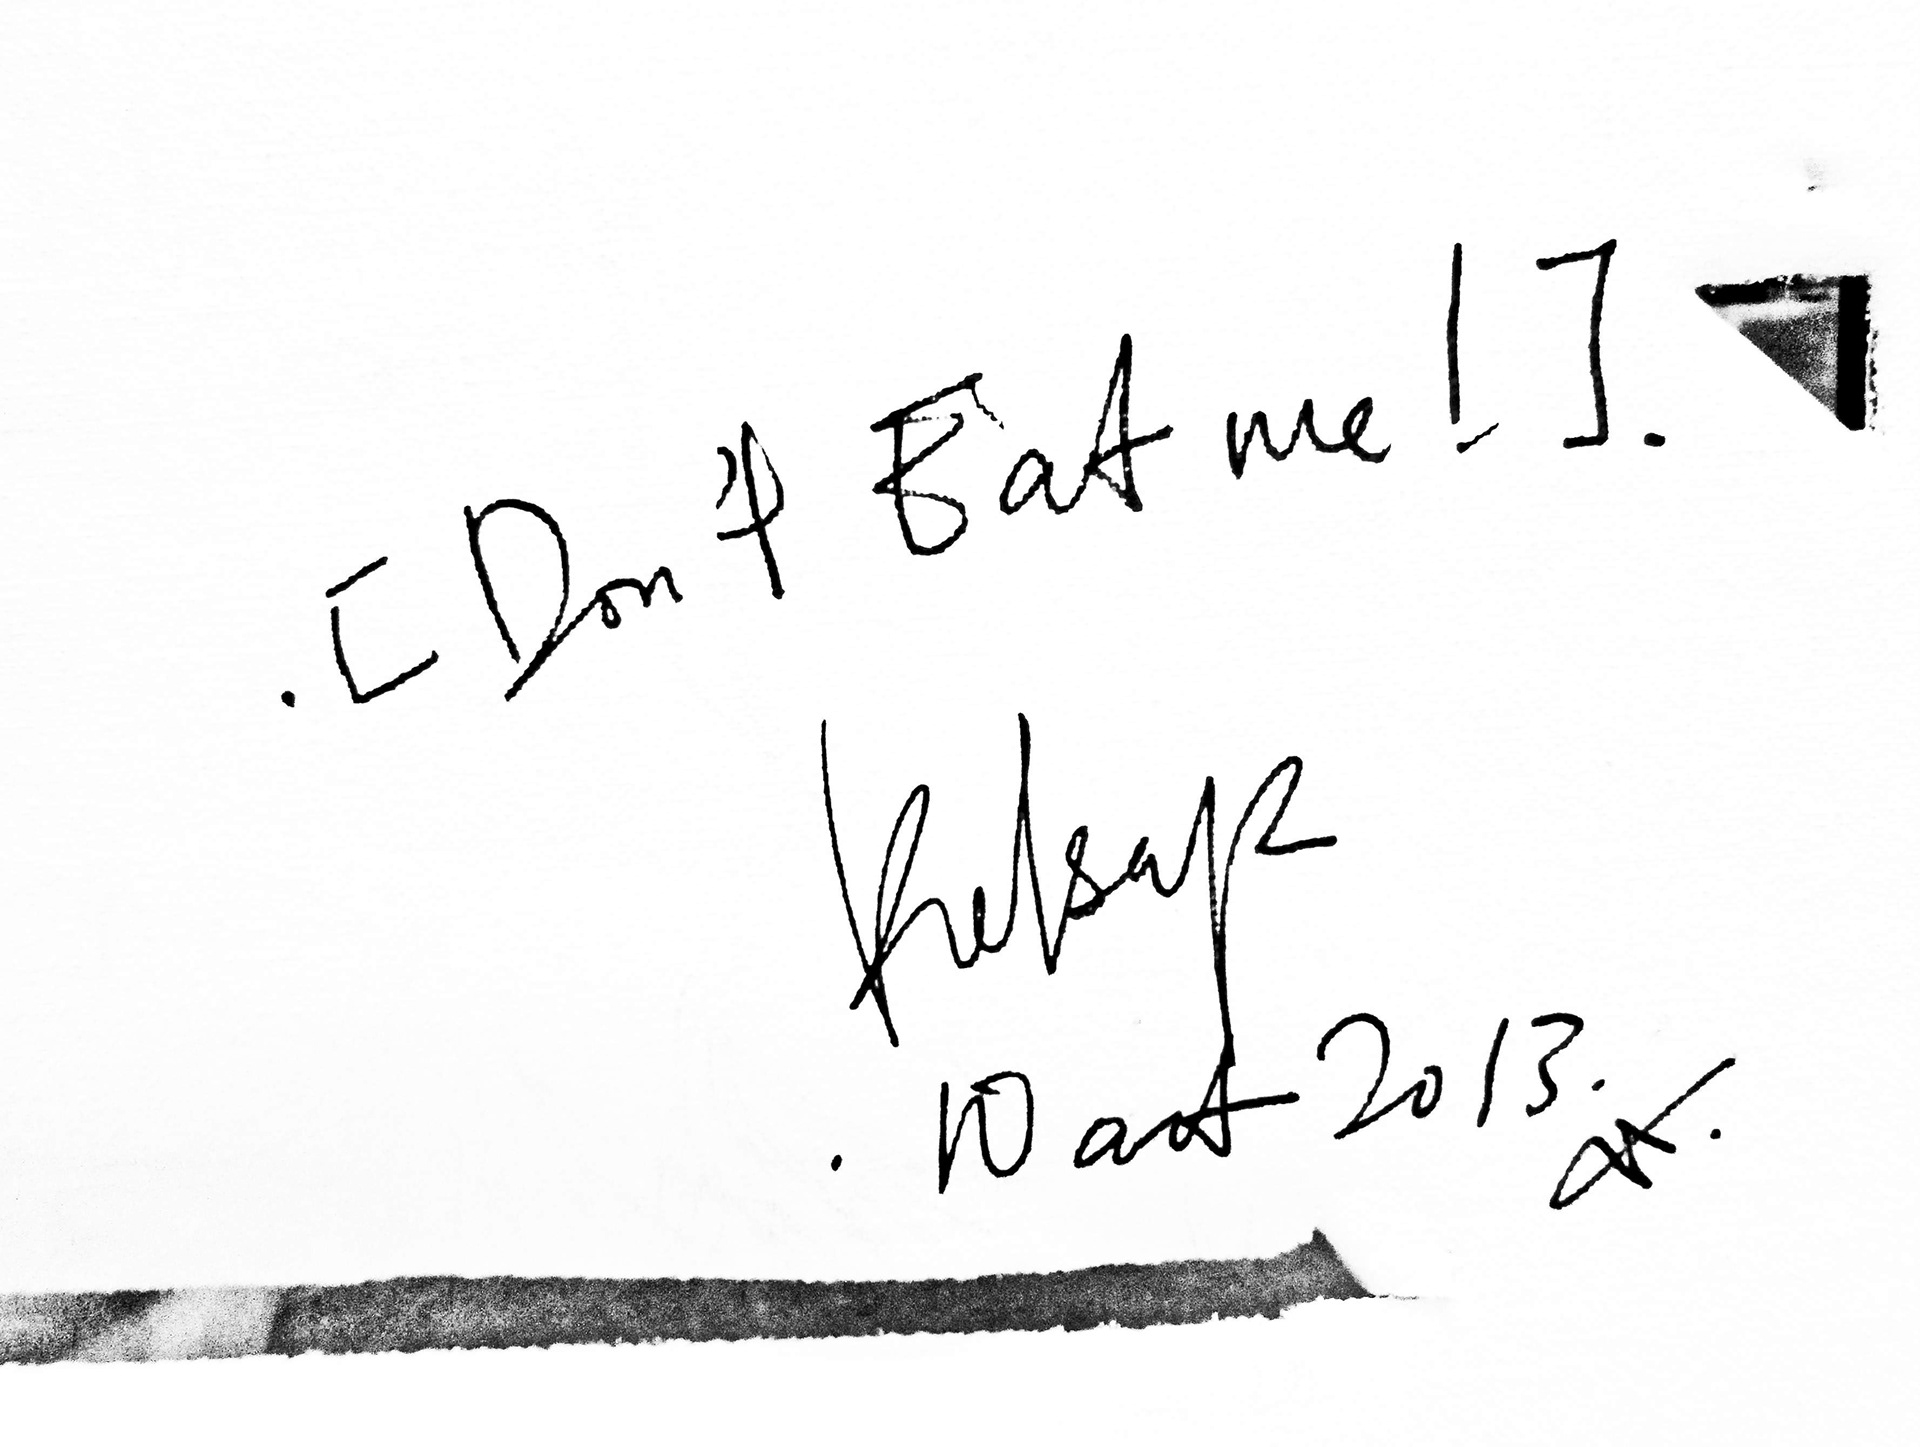 . [ Don't Eat me ! ] .
. 10 oct 2013.